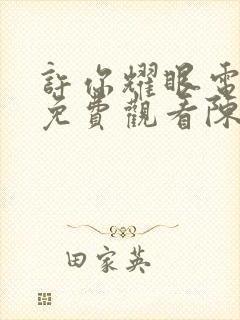 許你耀眼電
免費觀看陳
田家英